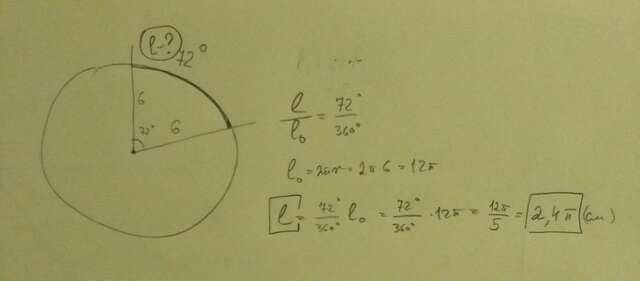 l-?
72°
6
72°
6
l/l₀ = 72°/360°
l₀ = 2πr = 2π6 = 12π
l = 72°/360° l₀ = 72°/360° · 12π = 12π/5 = 2,4π (см)